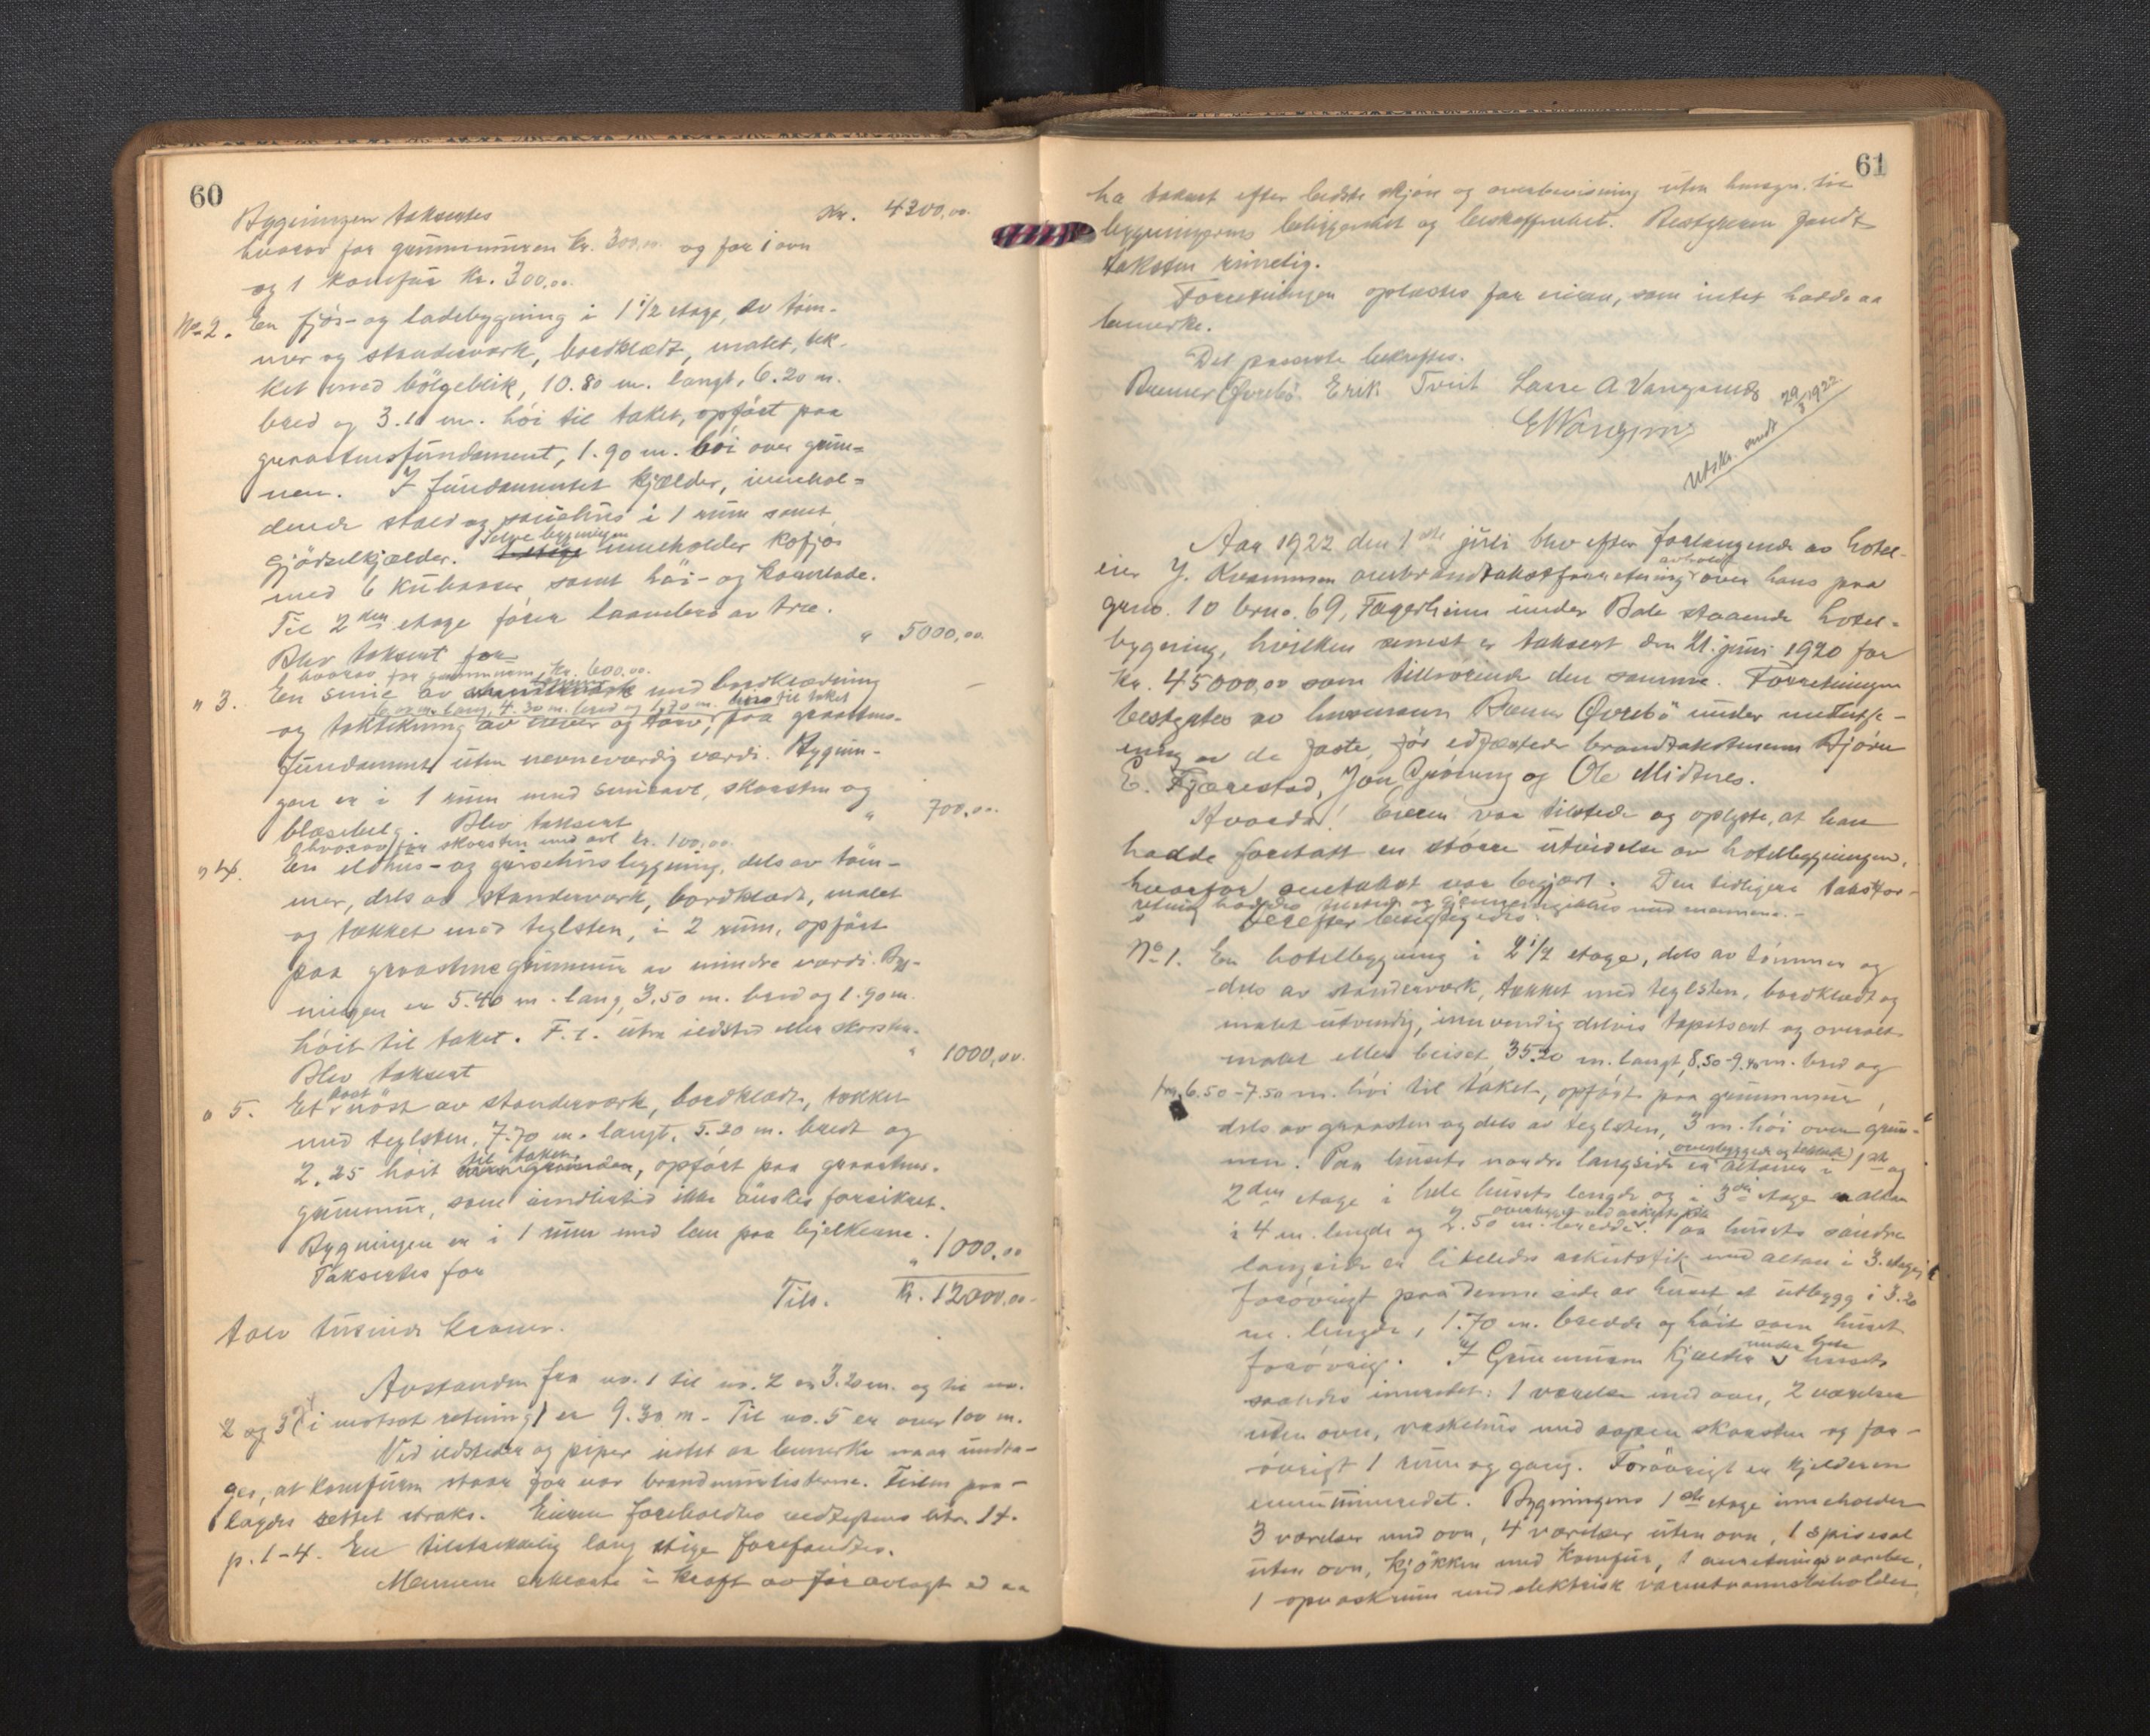 60
Bygningen takseres Kr. 4300,00.
hvorav for grunnmuren kr. 300,00 og for 1 ovn
og 1 komfur kr. 300,00.
No 2. En fjøs- og ladebygning i 1 1/2 etage, av tøm-
mer og standerverk, bordklædt, malet, tek-
ket med bølgeblik, 10.80 m. langt, 6.20 m.
bred og 3.10 m. høi til taket, opført paa
graastensfundament, 1.90 m. høi over grun-
nen. I fundamentet kjælder, innehol-
dende stald og sauehus i 1 rum samt
gjødselkjælder. Selve bygningen inneholder kofjøs
med 6 kubaaser, samt høi- og kornlade.
Til 2den etage fører laavebro av træ.
Blev taksert for " 5000,00.
hvorav for grunnmuren, kr. 600,00.
" 3. En smie av tømmer med bordklædning
6.00 m. lang, 4.30 m. bred og 1.70 m. høi til taket
og taktekning av never og torv, paa graastens-
fundament uten nevneværdig værdi. Bygnin-
gen er i 1 rum med smieavl, skorsten og
blæsebelg. Blev taksert " 700,00.
hvorav for skorsten med avl kr. 100,00.
" 4. En eldhus- og grisehusbygning, dels av tøm-
mer, dels av standerverk, bordklædt, malet
og tækket med teglsten, i 2 rum, opført
paa graastensgrunnmur av mindre værdi. Byg-
ningen er 5.40 m. lang, 3.50 m. bred og 1.90 m.
høit til taket. F.t. uten ildsted eller skorsten.
Blev taksert " 1000,00.
" 5. Et baatnøst av standerverk, bordklædt, tækket
med teglsten, 7.70 m. langt, 5.20 m. bredt og
2.25 høit til taket, opført paa graastens-
grunnmur, som imidlertid ikke ønskes forsikret.
Bygningen er i 1 rum med lem paa bjelkene.
Takseres for " 1000,00
Tils. Kr. 12000,00
tolv tusinde kroner.
Avstanden fra no. 1 til no. 2 er 3.20 m. og til no.
2 og 3 (i motsat retning) er 9.30 m. Til no. 5 er over 100 m.
Ved ildsteder og piper intet at bemerke naar undta-
ges, at komfuren staar for nær brandmurlisterne. Feilen paa-
lagdes rettet straks. Eieren foreholdtes vedtegtens litr. 14.
p. 1-4. En tilstrækkelig lang stige forefandtes.
Mennene erklærte i kraft av før avlagt ed at
61
ha taksert efter bedste skjøn og overbevisning uten hensyn til
bygningernes beliggenhet og beskaffenhet. Bestyreren fandt
taksten rimelig.
Forretningen oplæstes for eieren, som intet hadde at
bemerke.
Det passerte bekræftes.
Brenner Øvrebø. Erik Tveit Lasse A Vangsnes
E Vangsnes
Utskr. sendt 29/3 1922
Aar 1922 den 1ste juli blev efter forlangende av hotel-
eier J. Kvamme overbrandtakstforretning avholdt over hans paa
grno. 10 brno. 69, Fagerheim under Bale staaende hotel-
bygning, hvilken senest er taksert den 21. juni 1920 for
Kr. 45000,00 som tilhørende den samme. Forretningen
bestyres av lensmann Brenner Øvrebø under medvirk-
ning av de faste, før edfæstede brandtakstmenn Bjørn
E. Fjærestad, Jon Grøning og Ole Midtnes.
Hvorda! Eieren var tilstede og oplyste, at han
hadde foretatt en større utvidelse av hotelbygningen,
hvorfor omtakst var begjært. Den tidligere takstfor-
retning hadde tilstede og gjennemgikkes med mennene.
Derefter besigtigedes:
No 1. En hotelbygning i 2 1/2 etage, dels av tømmer og
dels av standerverk, tækket med teglsten, bordklædt og
malet utvendig, innvendig delvis tapetsert og overalt
malt eller beiset, 35.20 m. langt, 8.50-9.40 m. bred og
fra 6.50-7.50 m. høi til taket, opført paa grunnmur,
dels av graasten og dels av teglsten, 3 m. høi over grun-
nen. Paa husets nordre langside er overbyggede altaner i 1ste og
2den etage i hele husets lengde og i 3die etage er altan
i 4 m. lengde og 2.50 m. bredde. Paa husets søndre
langside er likeledes arkutstik med altan i 3. etage,
forøvrigt paa denne side av huset et utbygg i 3.20
m. lengde, 1.70 m. bredde og høit som huset
forøvrig. I Grunnmuren kjælder under hele huset
saaledes innredet: 1 værelse med ovn, 2 værelser
uten ovn, vaskehus med aapen skorsten og for-
øvrigt 1 rum og gang. Forøvrigt er kjelderen
uinnredet. Bygningens 1ste etage inneholder
3 værelser med ovn, 4 værelser uten ovn, 1 spisesal
uten ovn, kjøkken med komfur, 1 anretningsværelse,
1 opvaskrum med elektrisk varmtvannsbeholder,